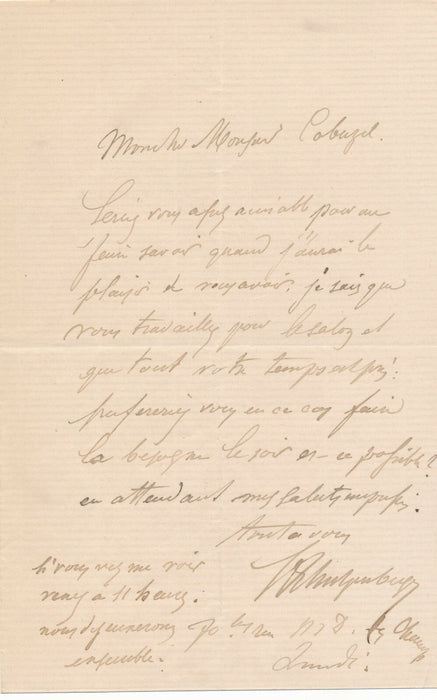 Mon cher Monsieur Cabuzel.
Seriez vous assez aimable pour me
faire savoir quand j'aurai le
plaisir de vous avoir. je sais que
vous travaillez pour le salon et
que tout votre temps est pris.
prefereriez vous en ce cas faire
la besogne le soir est-ce possible?
en attendant mes saluts empressés.
Tout a vous
si vous venez me voir
venez a 11 heures.
nous dejeunerons
ensemble.
Lundi.